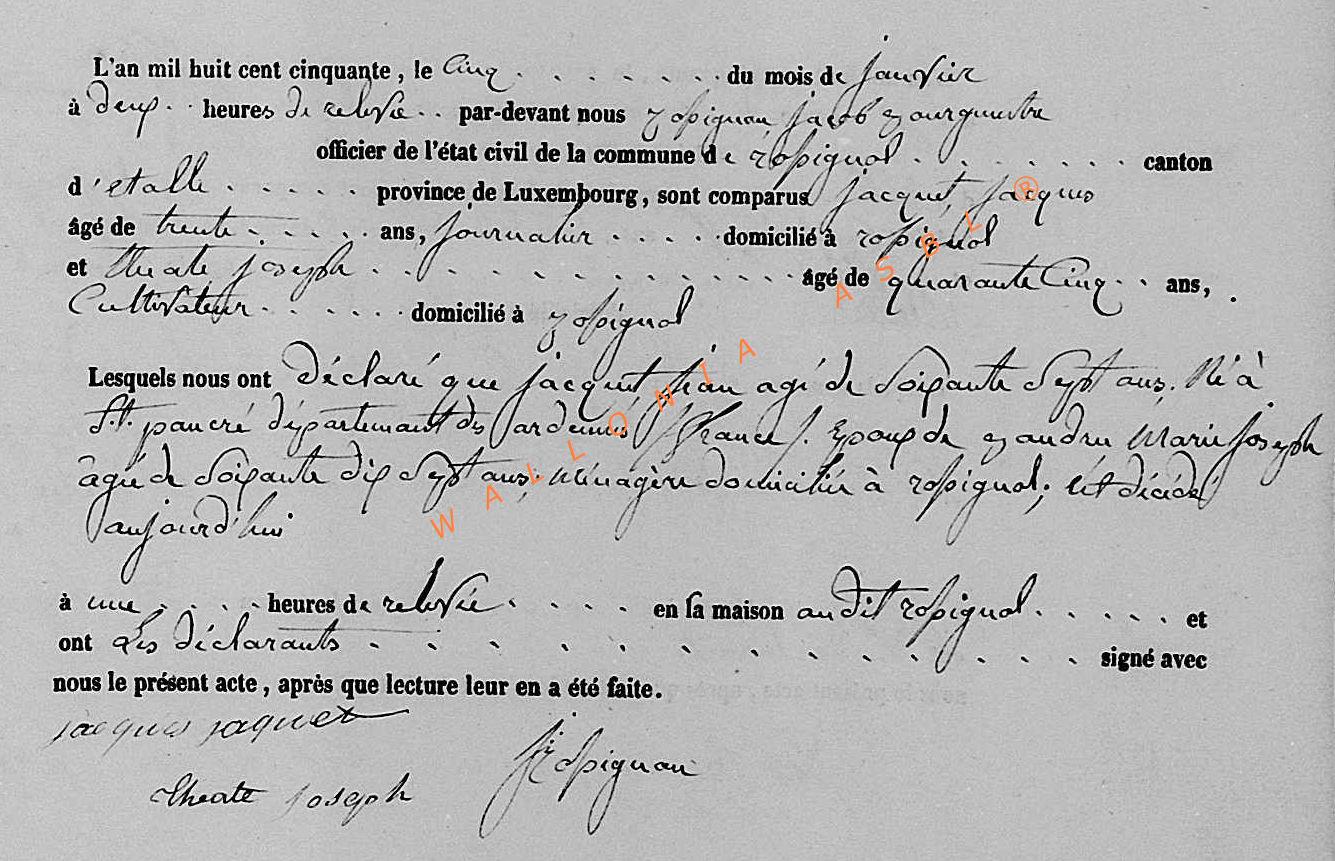 L'an mil huit cent cinquante, le Cinq . . . . . . . du mois de janvier
à deux . . heures de relevée . . par-devant nous rossignon, jacob bourgmestre
officier de l'état civil de la commune de rossignol . . . . . . . canton
d'etalle . . . . . province de Luxembourg, sont comparus jacquet, jacques
âgé de trente . . . . . ans, journalier . . . . domicilié à rossignol
et theate joseph . . . . . . . . . . . . . . âgé de quarante Cinq . . ans,
Cultivateur . . . . . . domicilié à rossignol
Lesquels nous ont déclaré que jacquet, jean agé de Soixante Sept ans, Né à
St. pancré département des ardennes (france). Epoux de Marie joseph
âgée de Soixante dix Sept ans, Ménagère domiciliée à rossignol; est décédé
aujourd'hui
à une . . . . heures de relevée . . . . en sa maison audit rossignol . . . . . et
ont Les déclarants . . . . . . . . . . . . . signé avec
nous le présent acte, après que lecture leur en a été faite.
jacques jaquet
Rossignon
theate joseph
WALLONIA ASBL ®